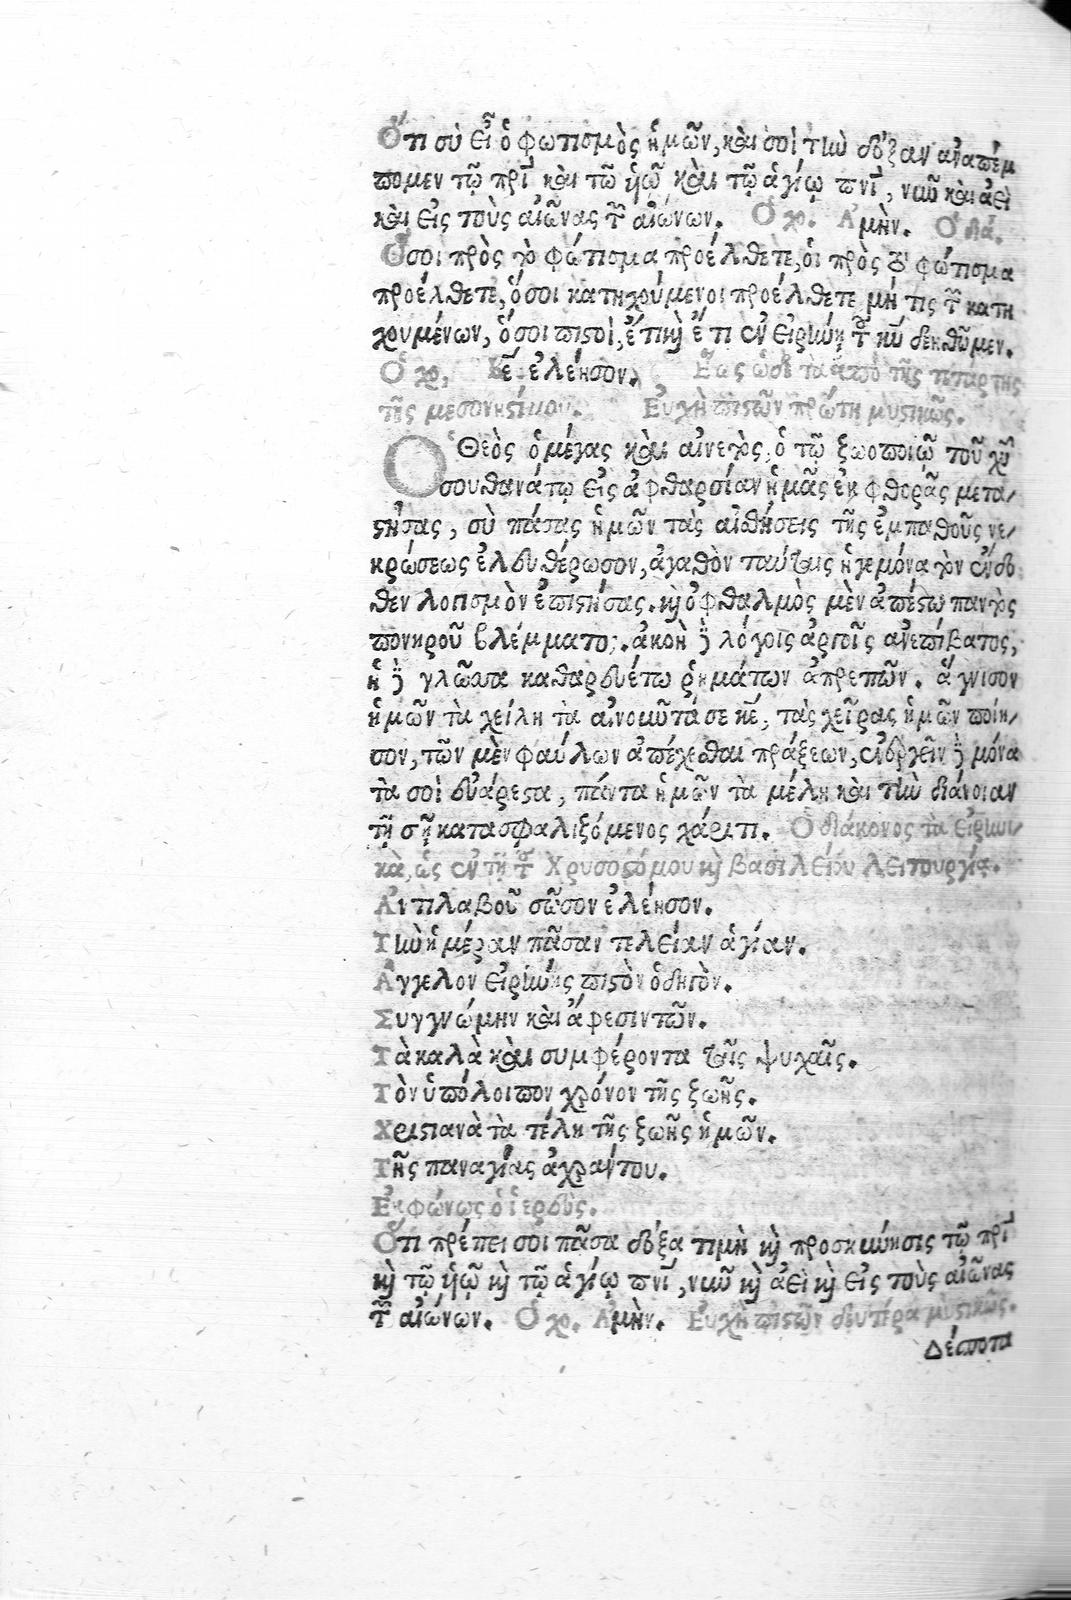 Ὅτι σὺ εἶ ὁ φωτισμὸς ἡμῶν, καὶ σοὶ τὴν δόξαν ἀναπέμ
πομεν τῷ πρὶ καὶ τῷ ὑῷ καὶ τῷ ἁγίῳ πνὶ, νῦν καὶ ἀεὶ
καὶ εἰς τοὺς αἰῶνας τῶν αἰώνων. Ὁ χο. Ἀμήν. Ὁ διά.
Ὅσοι πρὸς τὸ φώτισμα προέλθετε, οἱ πρὸς τὸ φώτισμα
προέλθετε, ὅσοι κατηχούμενοι προέλθετε μή τις τῶν κατη
χουμένων, ὅσοι πιστοὶ, ἔτι καὶ ἔτι ἐν εἰρήνῃ τοῦ κυ δεηθῶμεν.
Ὁ χο, Κε ἐλέησον. Ἕως ὧδε τὰ ἀπὸ τῆς τετάρτης
τῆς μεσονηστίμου. Εὐχὴ πιστῶν πρώτη μυστικῶς.
Ὁ Θεὸς ὁ μέγας καὶ αἰνετὸς, ὁ τῷ ζωοποιῷ τοῦ χυ
σου θανάτῳ εἰς ἀφθαρσίαν ἡμᾶς ἐκ φθορᾶς μετα/
στήσας, σὺ πάσας ἡμῶν τὰς αἰσθήσεις τῆς ἐμπαθοῦς νε/
κρώσεως ἐλευθέρωσον, ἀγαθὸν ταύταις ἡγεμόνα τὸν ἔνδο
θεν λογισμὸν ἐπιστήσας. καὶ ὀφθαλμὸς μὲν ἀπέστω παντὸς
πονηροῦ βλέμματος. ἀκοὴ δὲ λόγοις ἀργοῖς ἀνεπίβατος,
ἡ δὲ γλῶσσα καθαρευέτω ῥημάτων ἀπρεπῶν. ἅγνισον
ἡμῶν τὰ χείλη τὰ αἰνοῦντά σε κε, τὰς χεῖρας ἡμῶν ποίη/
σον, τῶν μὲν φαύλων ἀπέχεσθαι πράξεων, ἐνεργεῖν δὲ μόνα
τὰ σοὶ εὐάρεστα, πάντα ἡμῶν τὰ μέλη καὶ τὴν διάνοιαν
τῇ σῇ κατασφαλιζόμενος χάριτι. Ὁ διάκονος τὰ εἰρηνι/
κὰ, ὡς ἐν τῇ τοῦ Χρυσοστόμου καὶ βασιλείου λειτουργίᾳ.
Ἀντιλαβοῦ σῶσον ἐλέησον.
Τὴν ἡμέραν πᾶσαν τελείαν ἁγίαν.
Ἄγγελον εἰρήνης πιστὸν ὁδηγὸν.
Συγγνώμην καὶ ἄφεσιν τῶν.
Τὰ καλὰ καὶ συμφέροντα ταῖς ψυχαῖς.
Τὸν ὑπόλοιπον χρόνον τῆς ζωῆς.
Χριστιανὰ τὰ τέλη τῆς ζωῆς ἡμῶν.
Τῆς παναγίας ἀχράντου.
Ἐκφώνως ὁ ἱερεὺς.
Ὅτι πρέπει σοι πᾶσα δόξα τιμὴ καὶ προσκύνησις τῷ πρὶ
καὶ τῷ ὑῷ καὶ τῷ ἁγίῳ πνὶ, νῦν καὶ ἀεὶ καὶ εἰς τοὺς αἰῶνας
τῶν αἰώνων. Ὁ χο. Ἀμήν. Εὐχὴ πιστῶν δευτέρα μυστικῶς.
Δέσποτα